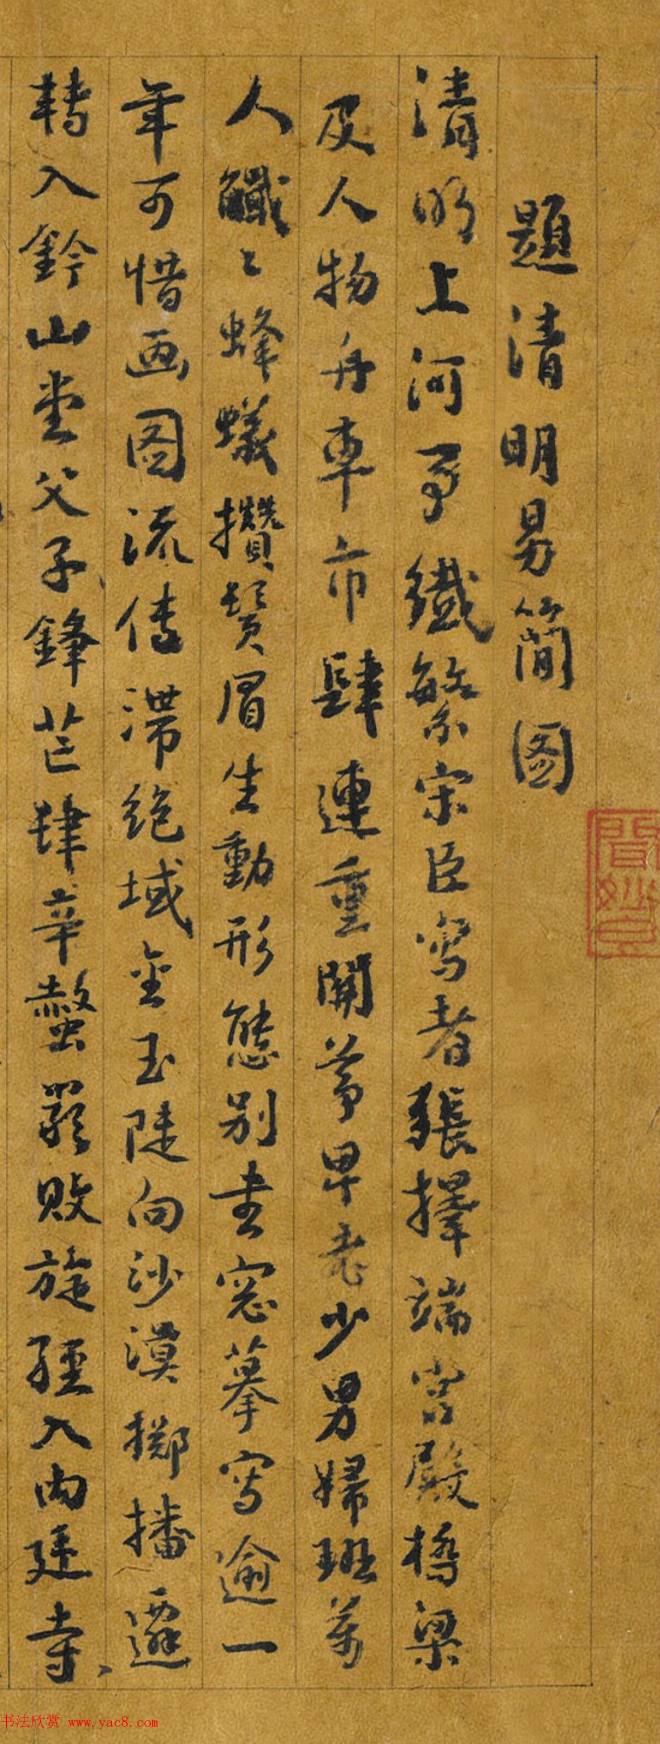 題清明易簡圖
清明上河事纖繁宋臣寫者張擇端宮殿橋梁
及人物舟車市肆連重關尊卑老少男婦班萬
人鱵〻蜂蟻攢鬚眉生動形態別書窓摹寫逾一
年可惜画圖流傳滞絶域金玉陡向沙漠擲播遷
轉入鈐山堂父子鋒芒肆辛螫嚴敗旋經入內廷寺
書法欣赏 www.yac8.com